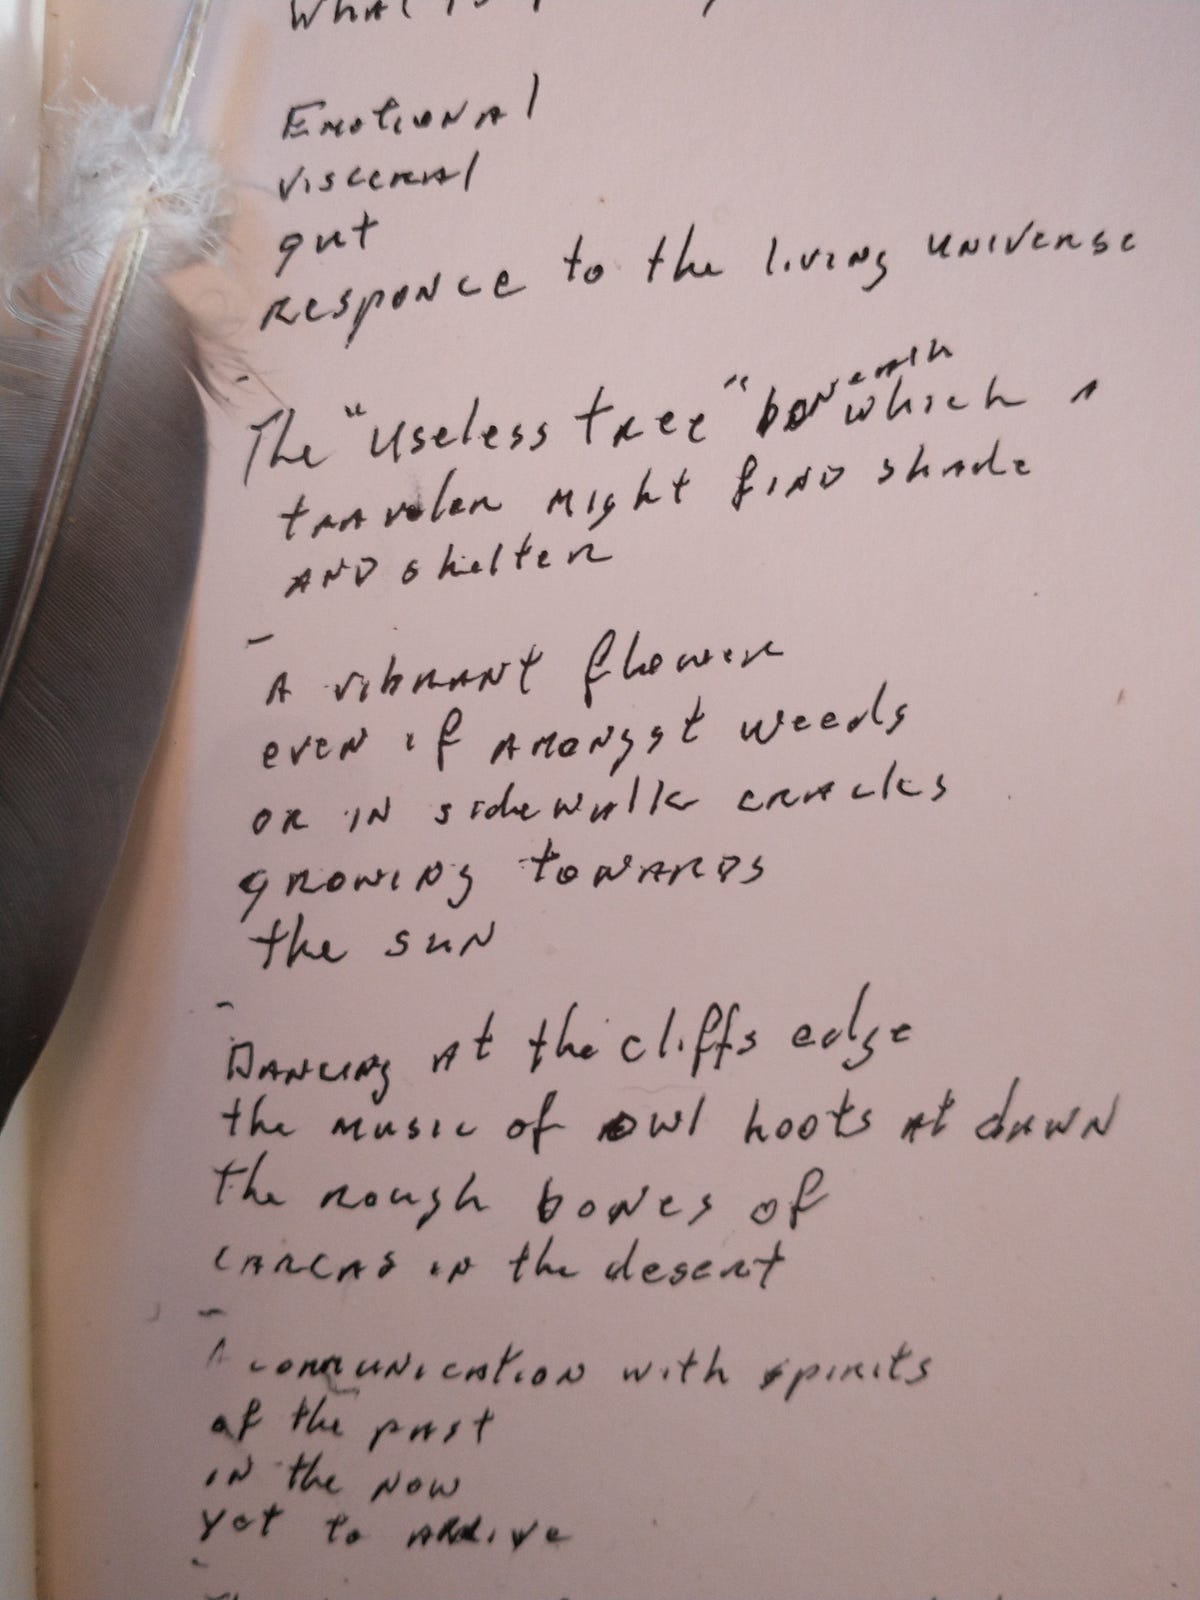 What is
Emotional
visceral
gut
responce to the living universe
-
The "useless tree" beneath which a
traveler might find shade
and shelter
-
A vibrant flower
even if amongst weeds
or in sidewalk cracks
growing towards
the sun
-
Dancing at the cliffs edge
the music of owl hoots at dawn
the rough bones of
carcas in the desert
-
A communication with spirits
of the past
in the now
yet to arrive
-